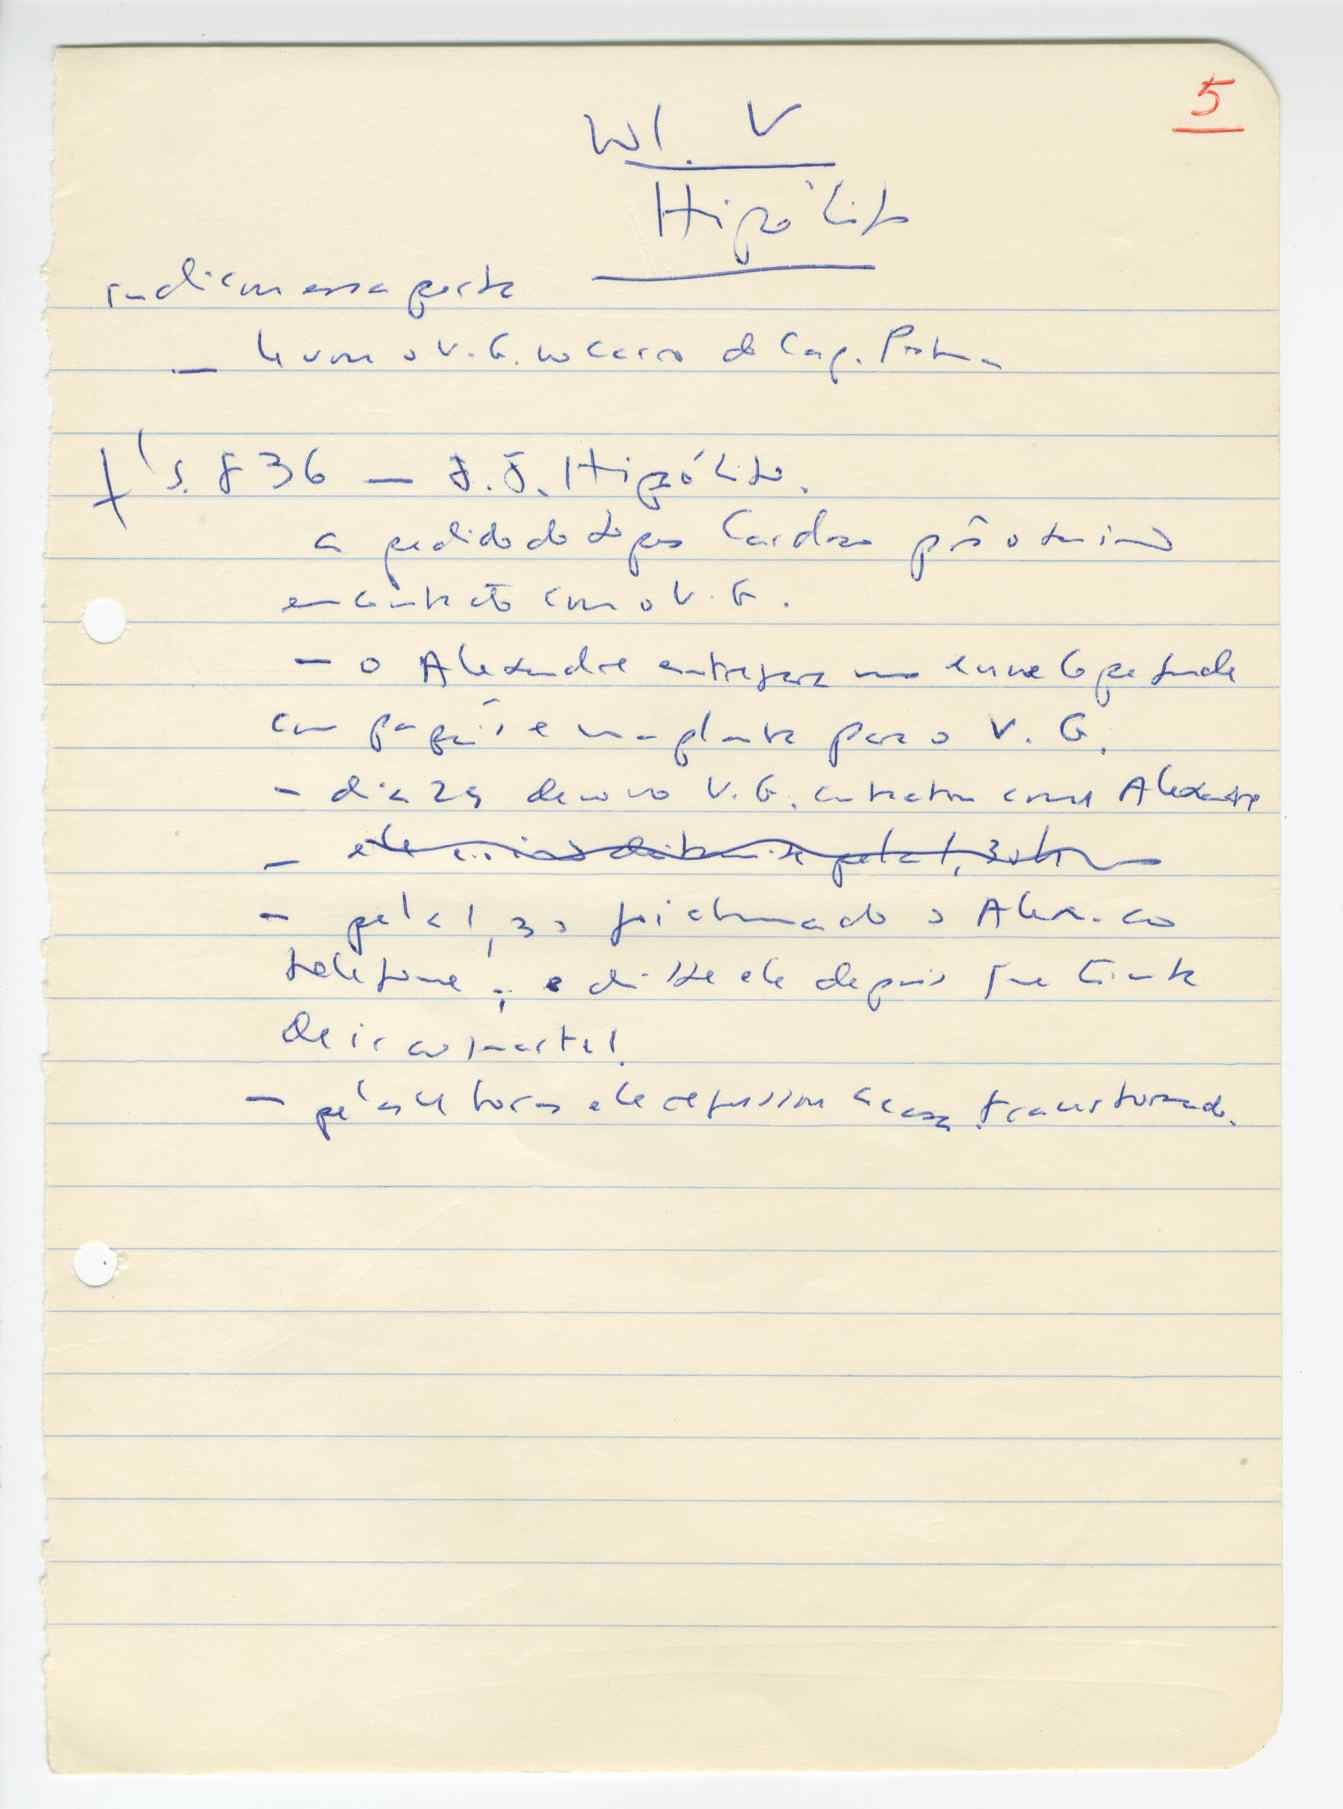 5
Vol. V
Hipólito
indicou essa parte
— levou o V.G. no carro do Cap.
fls. 836 — J.J. Hipólito.
a pedido do Lopes Cardoso
em contato com o V.G.
— o Alexandre entregara um envelope grande
com papéis e uma planta para o V.G.
— dia 29 de novo V.G. com Alexandre
— ele pela 1,30
— pela 1,30 foi chamado o Alex. ao
telefone; e disse ele depois que tinha
de ir ao quartel.
— pelas 4 horas ele regressou a casa transtornado.